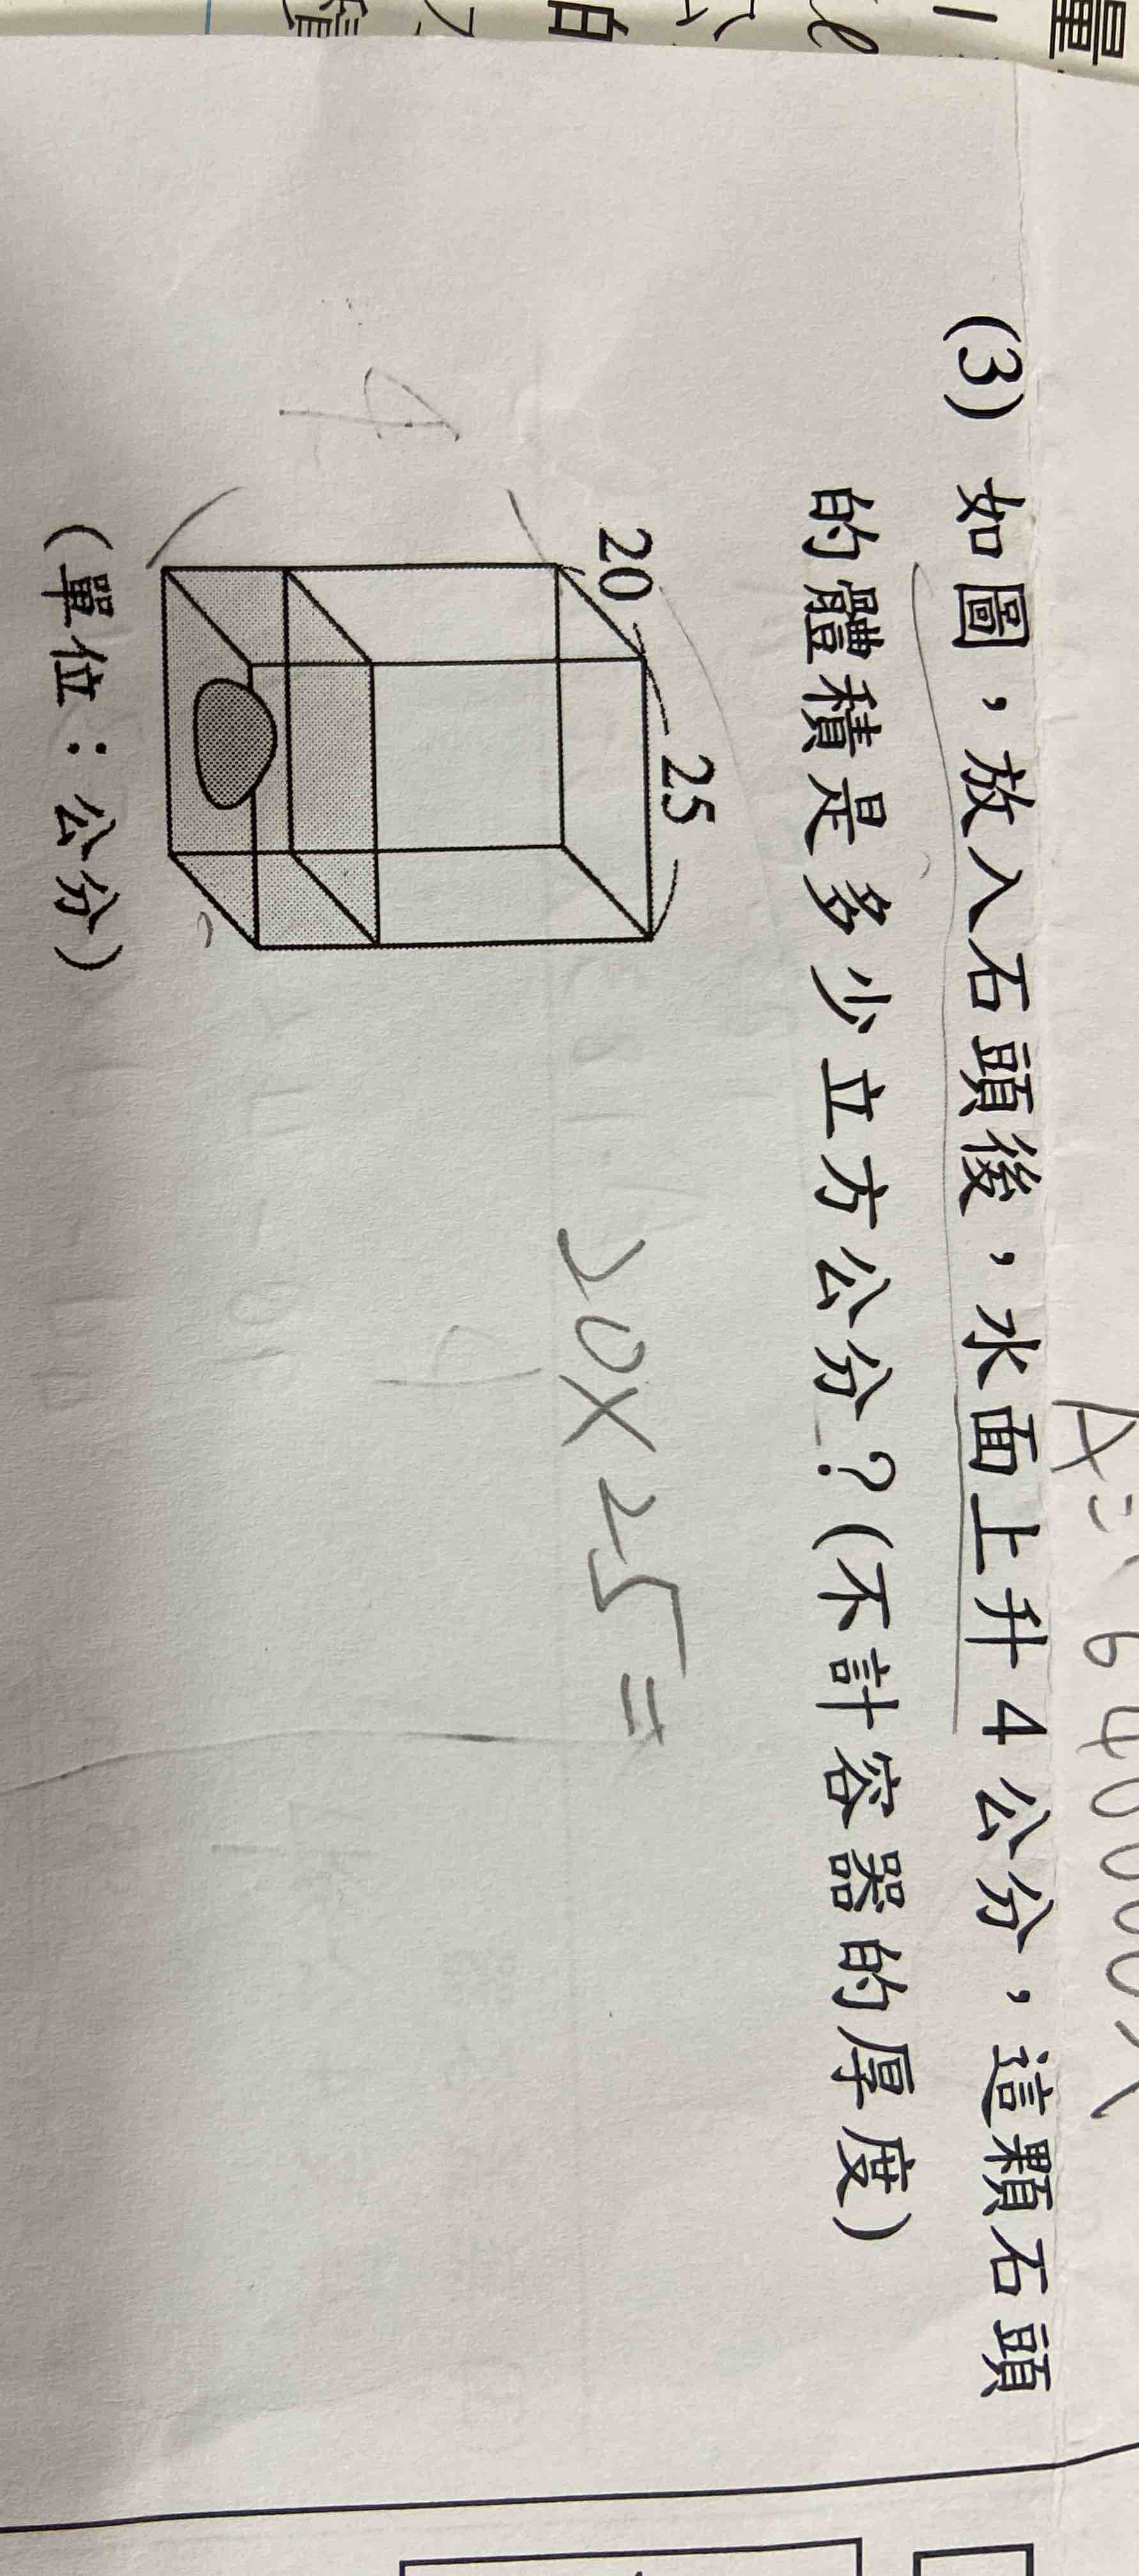 量
A=64000
(3) 如圖，放入石頭後，水面上升 4 公分，這顆石頭
的體積是多少立方公分？(不計容器的厚度)
25
20
20×25=
4
(單位：公分)